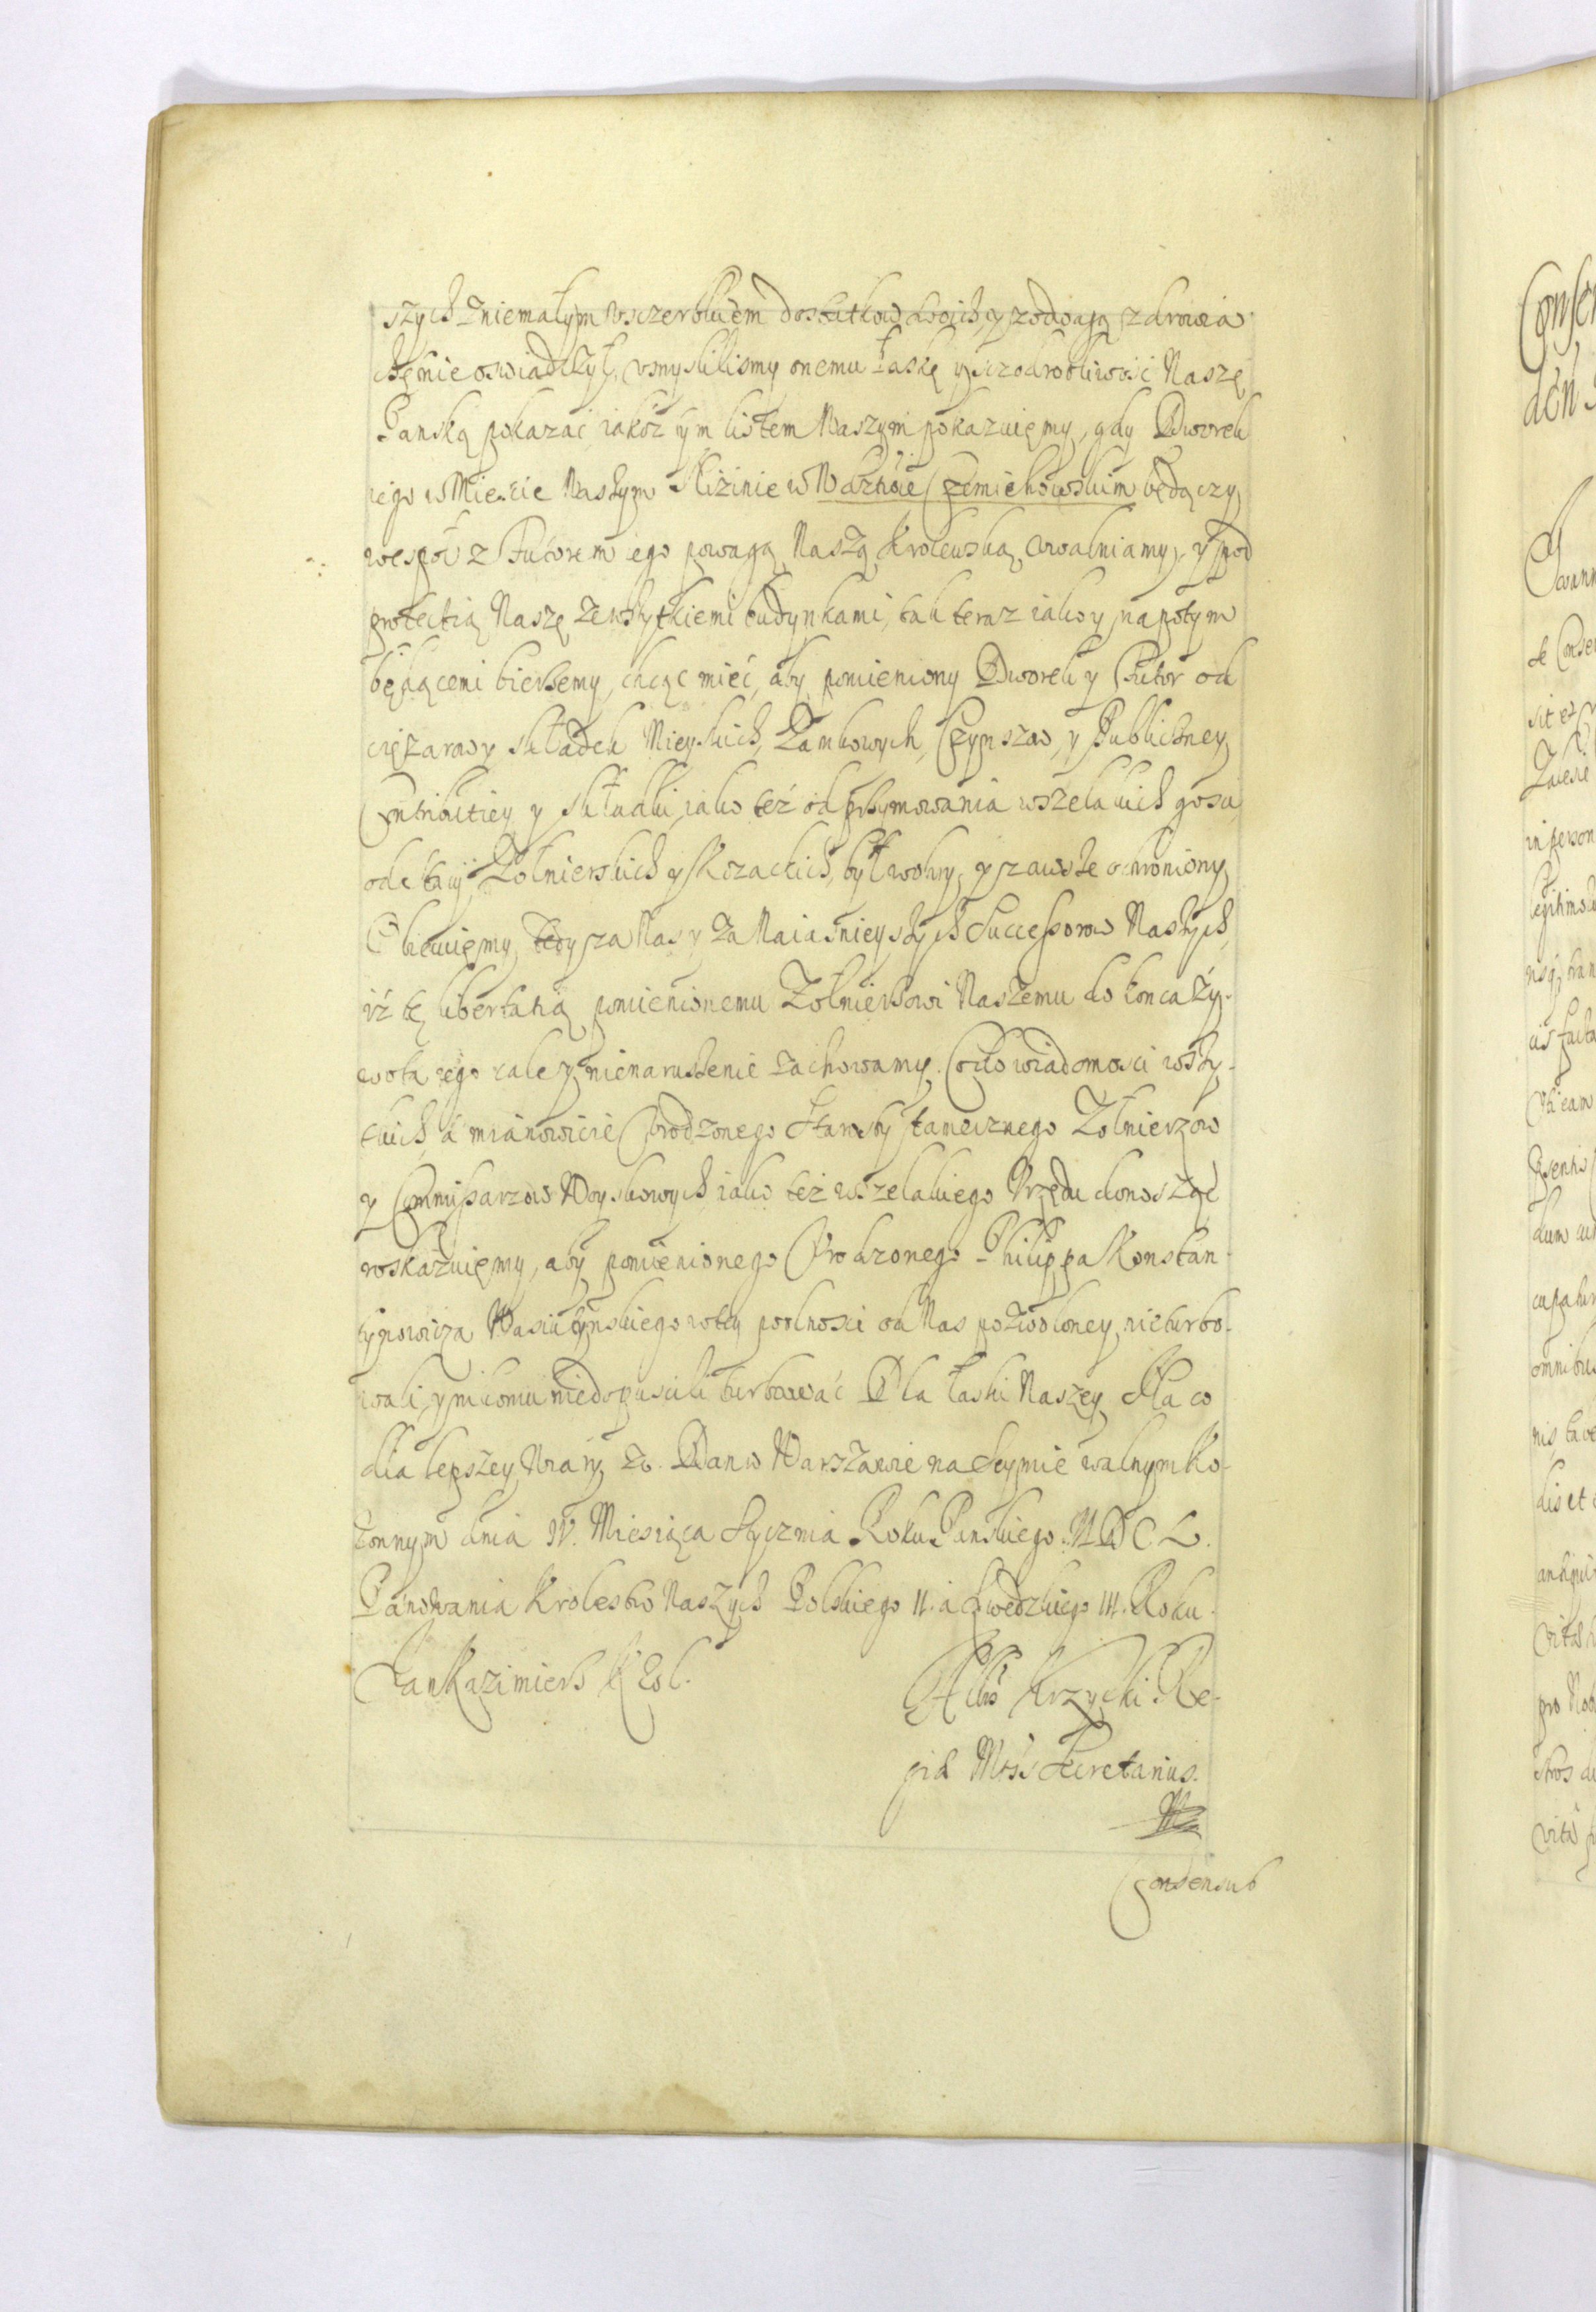 szych z niemałym vsczerbkiem dostatkow swoich, y z odwagą zdrowia
chętnie oswiadczył, vmyslilismy onemu łaskę y sczodrobliwość Naszę
Panską pokazać iakoż tym listem Naszym pokazuięmy, gdy Dworek
iego w Miescie Naszym Niżinie w Czerniehowskim będączy
wespoł z Futorem iego powagą Naszą Krolewską vwalniamy, y pod
protectią Naszę ze wszytkiemi budynkami, tak teraz iako y napotym
będącemi bierzemy, chcąc mieć, aby pomieniony Dworek y Futor od
ciężarow y składek Mieyskich, Zamkowych, Czynszow, y Publiczney
Contributiey y składki, iako też od przymowania wszelakich gosci
Zołnierskich y Kozackich, był wolny, y zawsze ochroniony
Obiecuięmy tedy za Nas y za Naiasnieyszych Successorow Naszych,
iż tę libertatią pomienionemu Zołnierzowi Naszemu do konca ży-
wota iego cale y nienaruszenie zachowamy. Co do wiadomosci wszy-
tkich, a mianowicie Vrodzonego Starszy Zołnierzow
y Commissarzow Woyskowych, iako też wszelakiego Vrzędu donosząc
roskazuięmy, aby pomienionego Vrodzonego Philippa Konstan-
tynowicza Wasiutynskiego w tey wolnosci od Nas pozwoloney, nieturbo-
wali, y nikomu niedopuscili turbować Dla łaski Naszey. Na co
dla lepszey Wiary etc. Dan w Warszawie na Seymie walnym Ko-
ronnym dnia IV. Miesiąca Stycznia Roku Panskiego. MDCL.
Panowania Krolestw Naszych Polskiego II. a Szwedzkiego III. Roku.
Jan Kazimierz Krol.
Krzycki Re-
giae Mttis Secretarius.
Consensus